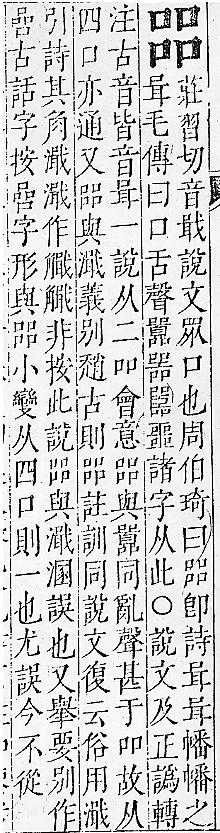 㗊莊習切音戢說文眾口也周伯琦曰㗊卽詩咠咠幡幡之
咠毛傳曰口舌聲囂器嚚噩諸字从此○說文及正譌轉
注古音皆音咠一說从二吅會意㗊與囂同亂聲甚于吅故从
四口亦通又㗊與濈義別趙古則㗊註訓同說文復云俗用濈
引詩其角濈濈作非按此說㗊與濈溷誤也又舉要別作
古話字按字形與㗊小變从四口則一也尤誤今不從